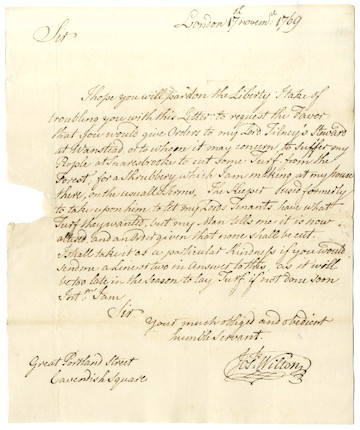 London 17th novemr 1769
Sir
I hope you will pardon the Liberty I take of
troubling you with this Letter to request the Favor
that you would give Orders to my Lord Tilney's Steward
at Wansted or to whom it may concern, to suffer my
People at Snaresbrook to cut some Turf from the
Forest for a Shrubbery, which I am making at my house
there, on the usual Terms. The Keeper Used formerly
to take upon him to let my Lords Tenants have what
Turf they wanted, but my Man tells me it is now
altered, and an Order given that none shall be cut
I shall take it as a particular Kindness if you would
send me a Line or two in Answer to this, as it will
be too late in the Season to lay Turf if not done soon
I am
Sir
Your much obliged and obedient
humble Servant.
Jos. Wilton
Great Portland Street
Cavendish Square